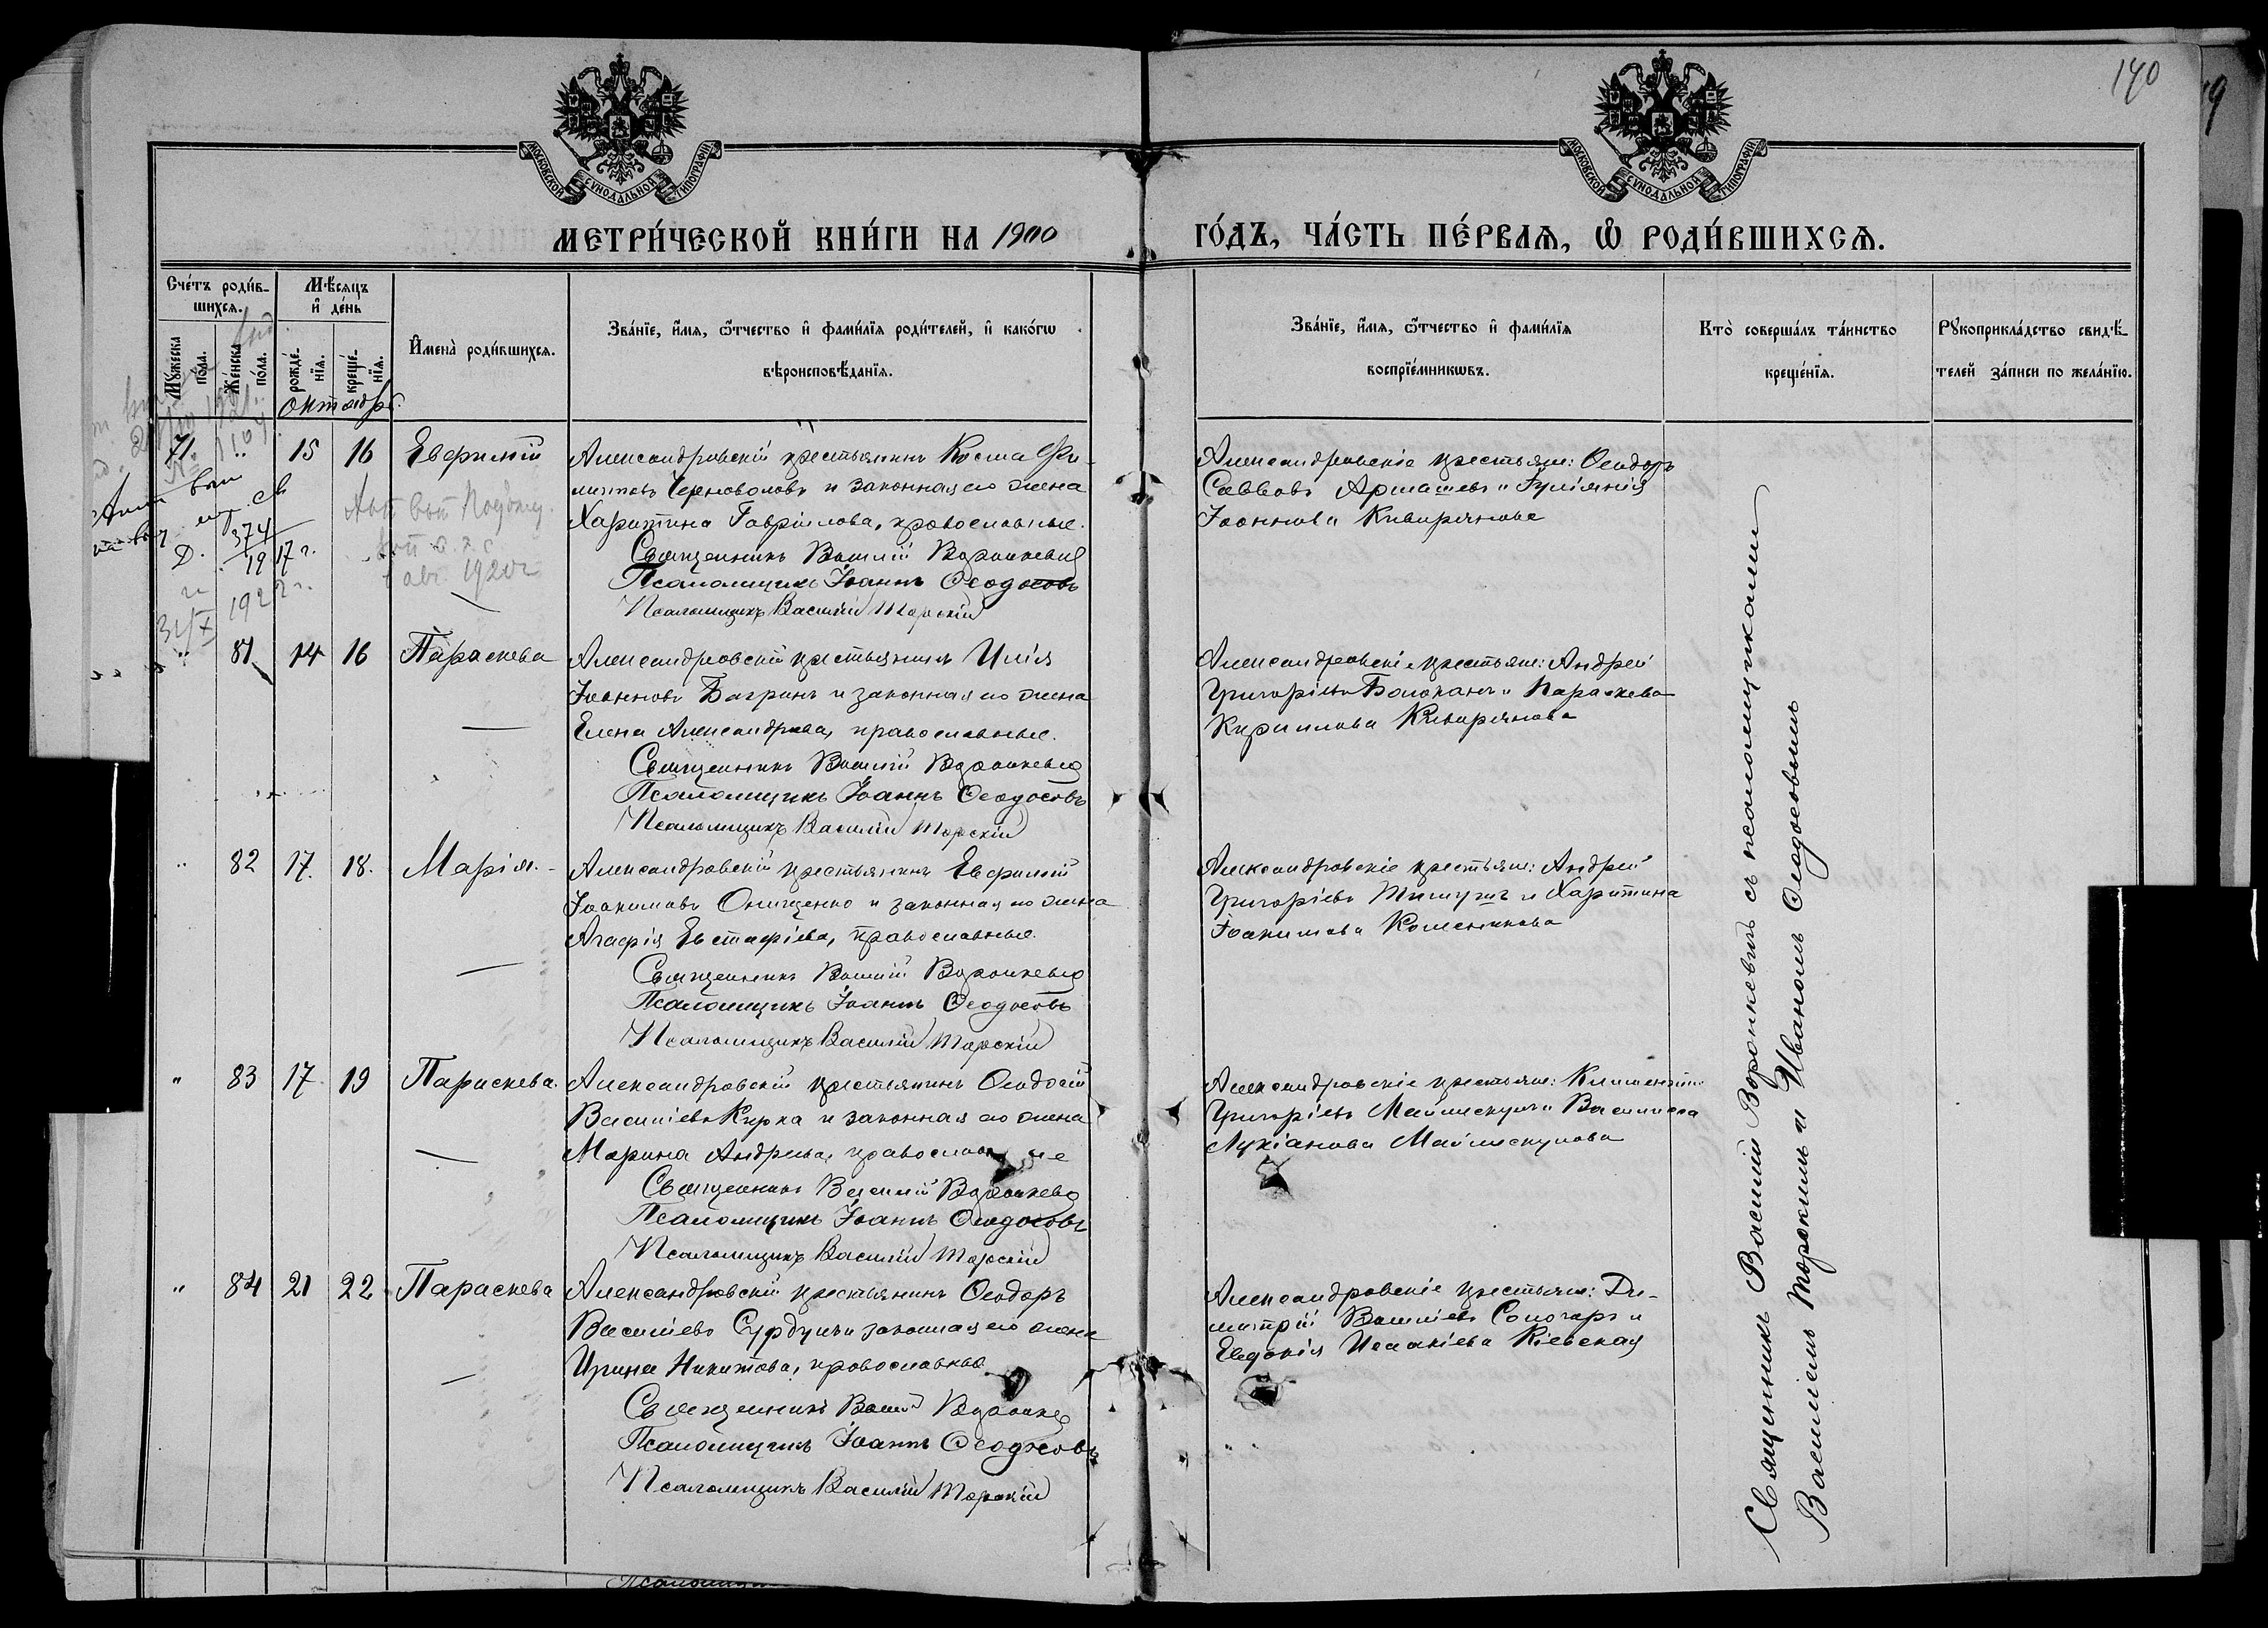 140
МОСКОВСКОЙ СѴНОДАЛЬНОЙ ТИПОГРАФІИ
МОСКОВСКОЙ СѴНОДАЛЬНОЙ ТИПОГРАФІИ
МЕТРИ́ЧЕСКОЙ КНИ́ГИ НА 1900
ГО́ДЪ, ЧА́СТЬ ПЕ́РВАѦ, Ѡ РОДИ́ВШИХСѦ.
Сче́тъ роди́в-
шихсѧ.
Мꙋ́жеска по́ла.
Же́нска по́ла.
Мѣ́сѧцъ
и҆ де́нь
рожде́-
нїѧ.
креще́-
нїѧ.
И҆мена̀ роди́вшихсѧ.
Зва́нїе, и҆́мѧ, ѻ҆́тчество и҆ фами́лїѧ роди́телей, и҆ како́гѡ
вѣроисповѣ́данїѧ.
Зва́нїе, и҆́мѧ, ѻ҆́тчество и҆ фами́лїѧ
воспрїе́мникѡвъ.
Кто̀ соверша́лъ та́инство
креще́нїѧ.
Рꙋкоприкла́дство свидѣ́-
телей за́писи по жела́нїю.
Октябрь.
71. " 15 16 Евфимій
Александровскій крестьянинъ Косма Фи-
липповъ Черноволовъ и законная его жена
Харитина Гавріилова, православные.
Священникъ Василій Воронкевич
Псаломщикъ Іоаннъ Ѳеодосовъ
Псаломщикъ Василій Торскій
Александровскіе крестьяне: Ѳеодоръ
Саввовъ Армашевъ и Іуліанія
Іоаннова Киверянова
374
1917 г.
1922 г.
авг. 1920 г.
" 81 14 16 Параскева
Александровскій крестьянинъ Илія
Іоанновъ Багринъ и законная его жена
Елена Александрова, православные.
Священникъ Василій Воронкевич
Псаломщикъ Іоаннъ Ѳеодосовъ
Псаломщикъ Василій Торскій
Александровскіе крестьяне: Андрей
Григорьевъ Болоканъ и Параскева
Кириллова Киверянова
" 82 17. 18. Марія.
Александровскій крестьянинъ Евфимій
Іоакимовъ Онищенко и законная его жена
Агафія Евстафіева, православные.
Священникъ Василій Воронкевич
Псаломщикъ Іоаннъ Ѳеодосовъ
Псаломщикъ Василій Торскій
Александровскіе крестьяне: Андрей
Григоріевъ и Харитина
Іоакимова Колесникова
" 83 17. 19 Параскева.
Александровскій крестьянинъ Ѳеодосій
Василіевъ Кирка и законная его жена
Марина Андреева, православные
Священникъ Василій Воронкевич
Псаломщикъ Іоаннъ Ѳеодосовъ
Псаломщикъ Василій Торскій
Александровскіе крестьяне: Климентій
Григоріевъ и Василиса
Лукіанова
" 84 21 22 Параскева
Александровскій крестьянинъ Ѳеодоръ
Василіевъ Сурдулъ и законная его жена
Ирина Никитова, православные
Священникъ Василій Воронкев
Псаломщикъ Іоаннъ Ѳеодосовъ
Псаломщикъ Василій Торскій
Александровскіе крестьяне: Ди-
митрій Василіевъ Слюсарь и
Евдокія Исакіева Кіевская
Священникъ Василій Воронкевичъ съ псаломщиками
Василіемъ Торскимъ и Иваномъ Ѳеодосовымъ